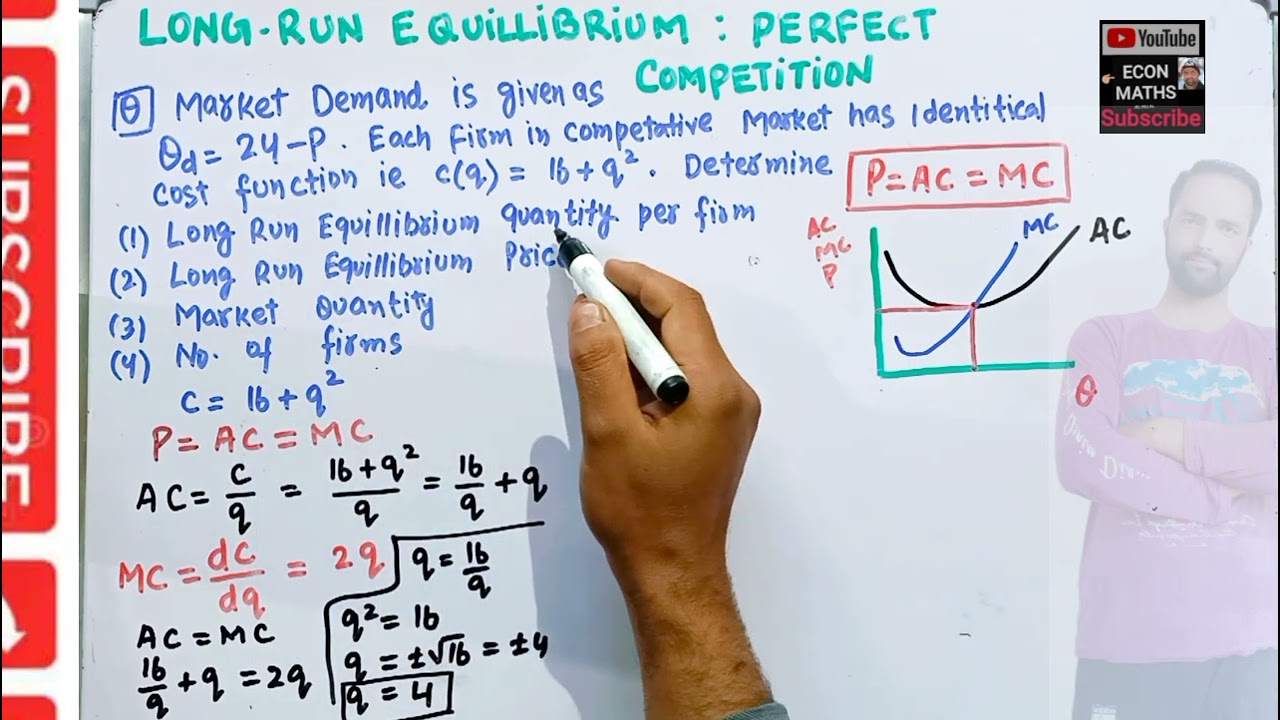 LONG-RUN EQUILLIBRIUM : PERFECT
COMPETITION
YouTube
ECON
MATHS
Subscribe
SUBSCRIBE
Q Market Demand is given as
Qd = 24-P. Each Firm in competative Market has Identitical
cost function ie c(q) = 16+q². Determine
P=AC=MC
(1) Long Run Equillibrium quantity per firm
(2) Long Run Equillibrium Pric
(3) Market Quantity
(4) No. of firms
AC
MC
P
MC
AC
Q
C = 16+q²
P = AC = MC
AC = C/q = (16+q²)/q = 16/q + q
MC = dC/dq = 2q
AC = MC
16/q + q = 2q
q = 16/q
q² = 16
q = ±√16 = ±4
q = 4